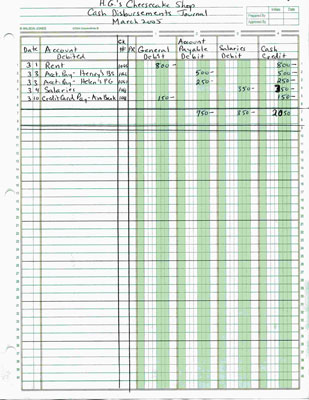 H.G.'s Cheesecake Shop
Cash Disbursements Journal
March 2005
Initials Date
Prepared By
Approved By
Date Account Debited CK # PR General Debit Account Payable Debit Salaries Debit Cash Credit
3 1 Rent 800- 800-
3 3 Acct. Pay- Henry's BS 500- 500-
3 3 Acct. Pay- Helen's FG 250- 250-
3 4 Salaries 350- 350-
3 10 Credit Card Pay- Ann Bank 150- 150-
750- 350- 2050